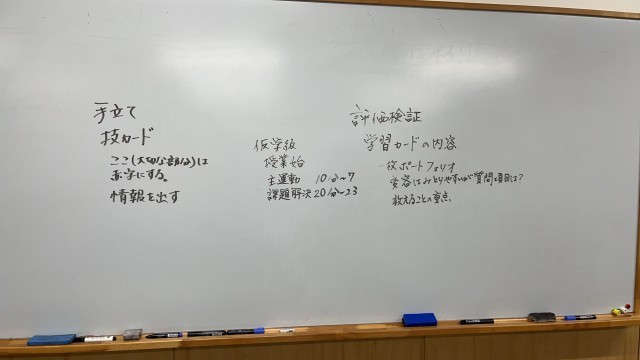 手立て
技カード
ここ(大切な部分)は
赤字にする。
情報を出す
仮学級
授業始
主運動 10分~7
課題解決20分~23
評価検証
学習カードの内容
一枚ポートフォリオ
変容はみとりやすいが質問項目は?
教えることの重点、